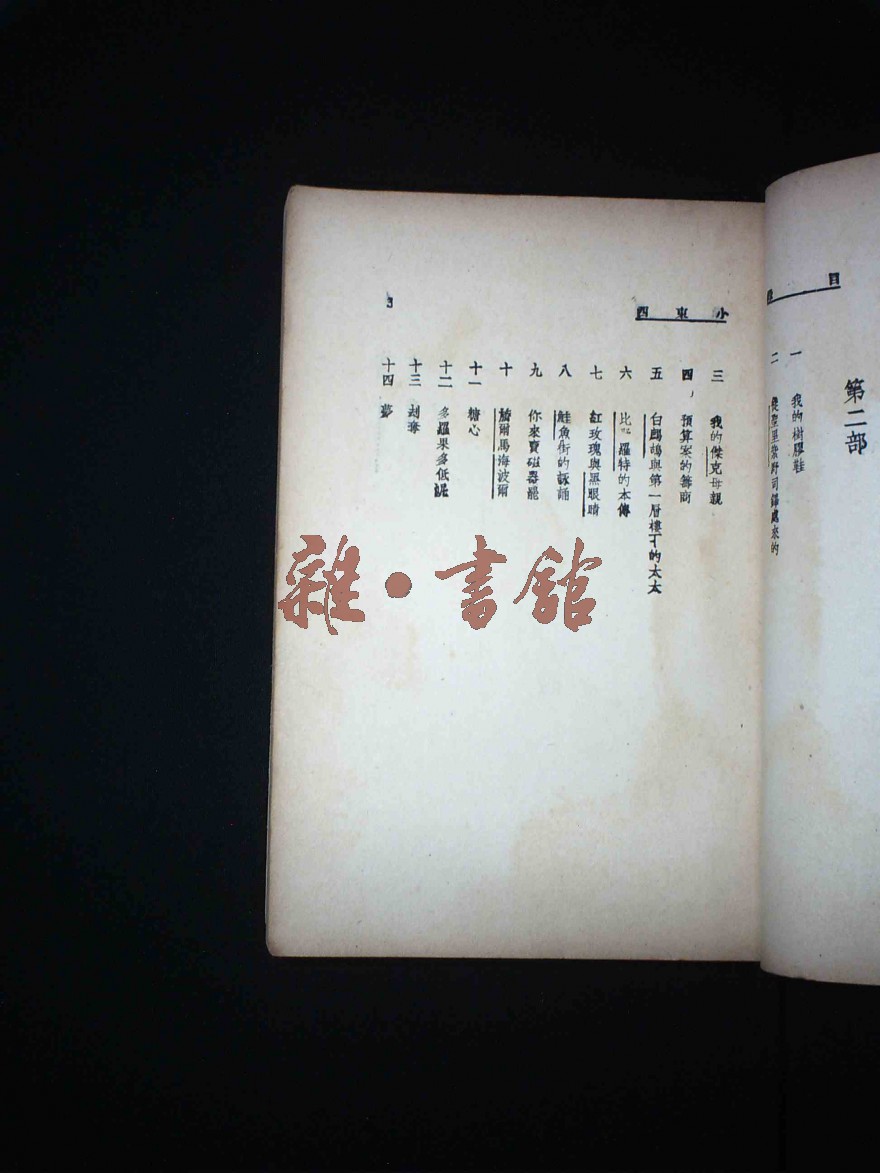 目
第二部
一 我的樹膠鞋
二
小東西
三 我的傑克母親
四 預算案的籌商
五 白鷓鴣與第一層樓下的太太
六 比 羅特的本傳
七 紅玫瑰與黑眼睛
八 鮭魚街的誦
九 你來賣磁器罷
十 爾馬海波爾
十一 糖心
十二 多羅果多低泥
十三 刦奪
十四 夢
雜·書館